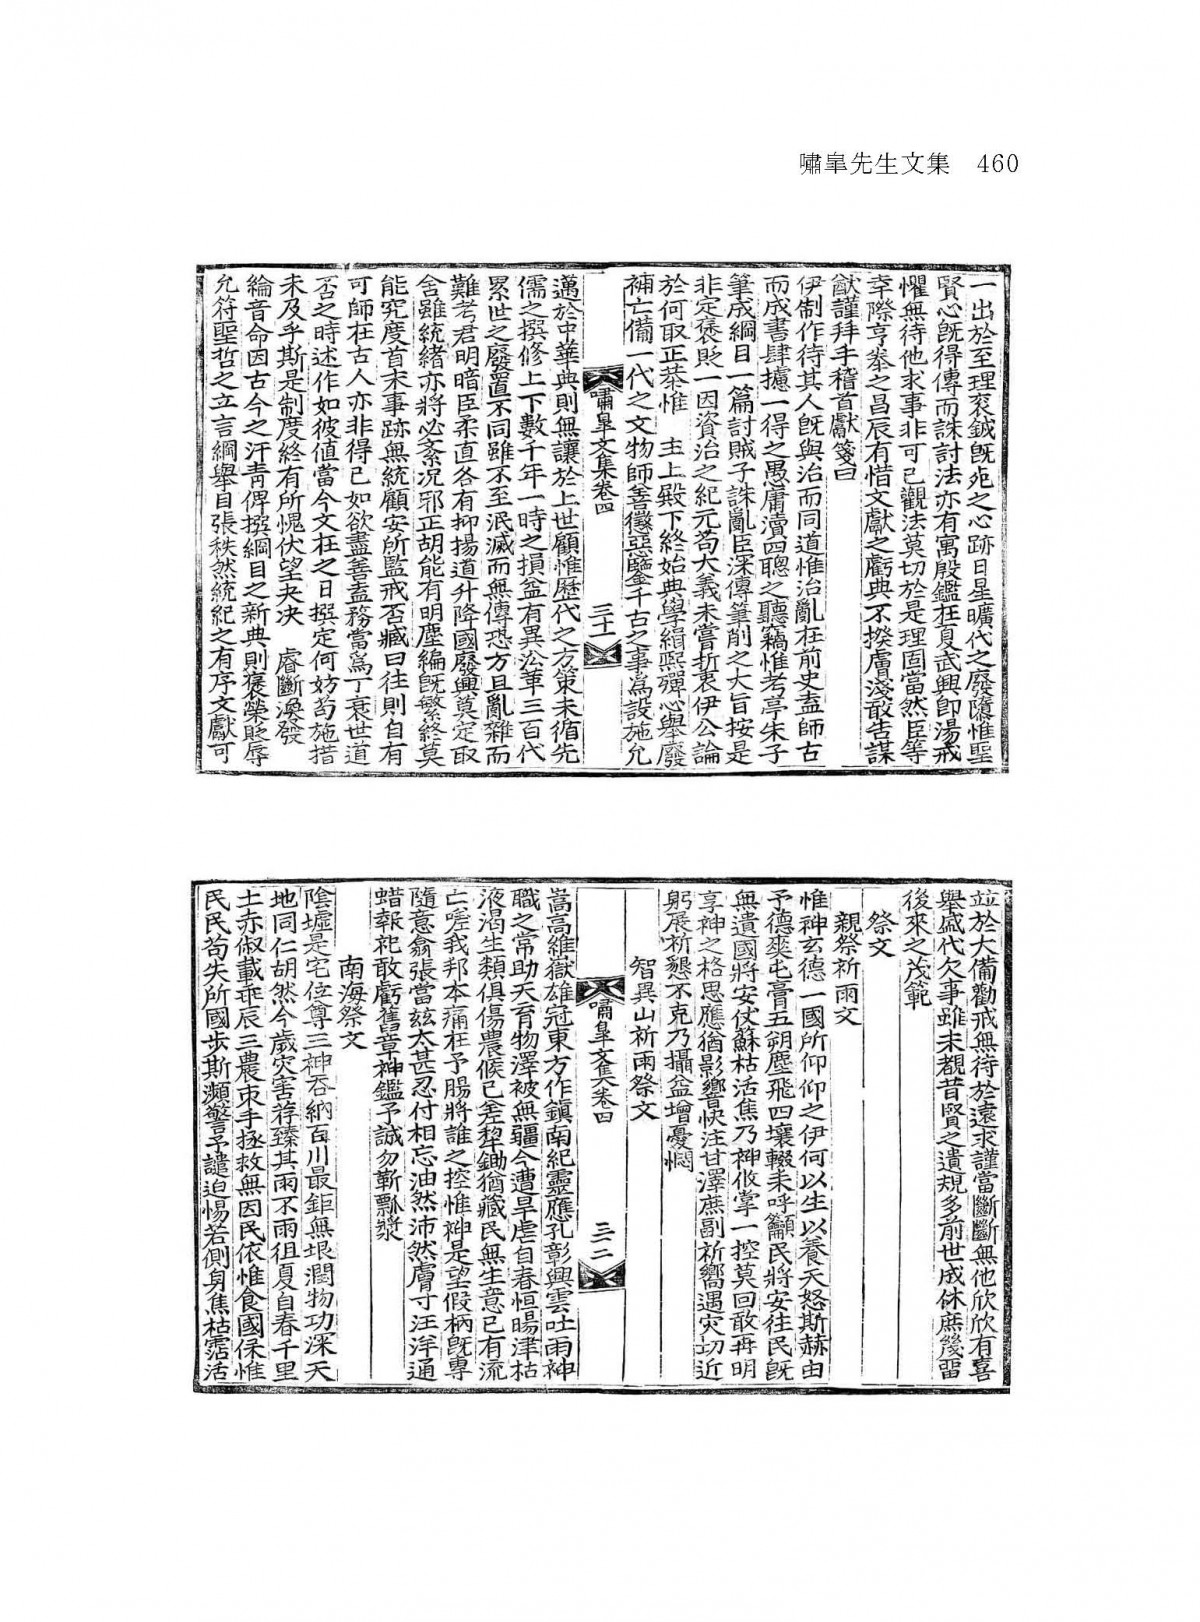 嘯皐先生文集 460
一出於至理袞鉞旣昭之心跡日星曠代之廢墮惟聖
賢心旣得傳而誅討法亦有寓殷鑑在夏武興卽湯戒
懼無待他求事非可已觀法莫切於是理固當然臣等
幸際亨泰之昌辰有惜文獻之虧典不揆膚淺敢告謀
猷謹拜手稽首獻箋曰
伊制作待其人旣與治而同道惟治亂在前史盍師古
而成書肆攄一得之愚庸瀆四聰之聽竊惟考亭朱子
筆成綱目一篇討賊子誅亂臣深傳筆削之大旨按是
非定褒貶一因資治之紀元苟大義未嘗折衷伊公論
於何取正恭惟 主上殿下終始典學緝熙殫心擧廢
補亡備一代之文物師善懲惡鑒千古之事爲設施允
嘯皐文集卷四 三十一
邁於中華典則無讓於上世顧惟歷代之方策未循先
儒之撰修上下數千年一時之損益有異沿革三百代
累世之廢置不同雖不至泯滅而無傳恐方且亂雜而
難考君明暗臣柔直各有抑揚道升降國廢興莫定取
舍雖統緖亦將必紊況邪正胡能有明塵編旣繁終莫
能究度首末事跡無統顧安所監戒否臧曰往則自有
可師在古人亦非得已如欲盡善盍務當爲丁衰世道
否之時述作如彼値當今文在之日撰定何妨苟施措
未及乎斯是制度終有所愧伏望夬決 睿斷渙發
綸音命因古今之汗靑俾撰綱目之新典則褒榮貶辱
允符聖哲之立言綱擧目張秩然統紀之有序文獻可
竝於大備勸戒無待於遠求謹當斷斷無他欣欣有喜
擧盛代欠事雖未覩昔賢之遺規多前世成休庶幾留
後來之茂範
祭文
親祭祈雨文
惟神玄德一國所仰仰之伊何以生以養天怒斯赫由
予德爽屯膏五朔塵飛四壤輟耒呼籲民將安往民旣
無遺國將安仗蘇枯活焦乃神攸掌一控莫回敢再明
享神之格思應猶影響快注甘澤庶副祈嚮遇灾切近
躬展祈懇不克乃攝益增憂憫
智異山祈雨祭文
嘯皐文集卷四 三十二
嵩高維嶽雄冠東方作鎭南紀靈應孔彰興雲吐雨神
職之常助天育物澤被無疆今遭旱虐自春恒暘津枯
液渴生類俱傷農候已差犁鋤猶藏民無生意已有流
亡嗟我邦本痛在予腸將誰之控惟神是望假柄旣專
隨意翕張當玆太甚忍付相忘油然沛然膚寸汪洋通
蜡報祀敢虧舊章神鑑予誠勿靳瓢漿
南海祭文
陰墟是宅位尊三神吞納百川最鉅無垠潤物功深天
地同仁胡然今歲灾害荐臻其雨不雨徂夏自春千里
土赤俶載乖辰三農束手拯救無因民依惟食國保惟
民民苟失所國步斯瀕警予譴迫惕若側身焦枯霑活